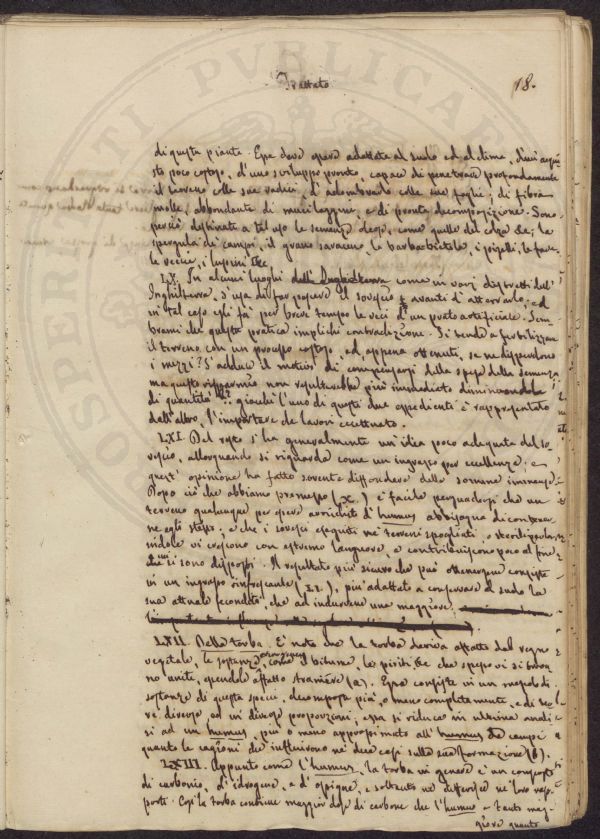 Trattato
18.
di queste piante. Essa deve essere adattata al suolo ed al clima, d'un acqui
sto poco costoso, d'uno sviluppo pronto, capace di penetrare profondamente
il terreno colle sue radici, d'adombrarlo colle sue foglie; di fibra
molle, abbondante di mucilaggine, e di pronta decomposizione. Sono
perciò destinate a tal uso le semenze oleose, come quelle del colza &c; la
spergula de' campi, il grano saraceno, la barbabietola, i piselli, le fave
le veccie, i lupini &c.
LX. In alcuni luoghi dell'Inghilterra come in varj distretti dell'
Inghilterra, s'usa di far pascere il sovescio avanti d'atterrarlo; ed
in tal caso egli fa per breve tempo le veci d'un prato artificiale. Sem-
brami che questa pratica implichi contradizione. Si tende a fertilizzare
il terreno con un processo costoso, ed appena ottenuti, se ne disperdono
i mezzi? S'adduce il motivo di compensarsi della spesa della semenza
ma questo risparmio non risulterebbe più immediato diminuendola
di quantità? giacchè l'uno di questi due espedienti è rappresentato
dall'altro, l'importare de' lavori eccettuato.
LXI. Del resto s'ha generalmente un'idea poco adequata del so-
vescio, allorquando si riguarda come un ingrasso per eccellenza; e
quest'opinione ha fatto sovente diffondere delle somme immense.
Dopo ciò che abbiamo premesso (X.) è facile persuadersi che un
terreno qualunque per essere arricchito d'humus abbisogna di contener-
ne egli stesso, e che i sovesci eseguiti ne' terreni spogliati, o
vi crescono con estremo languore, e contribuiscono poco al fine
cui si sono disposti. Il resultato più sicuro che può ottenersene consiste
in un ingrasso rinfrescante più adattato a conservare al suolo la
sua attuale fecondità che ad indurvene una maggiore.
LXII. Della torba. È noto che la torba deriva affatto dal regno
vegetale, le sostanze come il bitume, le piriti &c che spesso vi si trova-
no unite, essendole affatto straniere (a). Essa consiste in un
sostanze di questa specie, decomposte più, o meno completamente, e di
diverse ed in diverse proporzioni; essa si riduce in ultima anali-
si ad un humus, più o meno approssimato all'humus de' campi
quanto le cagioni che influirono ne' due casi sulla sua formazione (b).
LXIII. Appunto come l'humus, la torba in genere è un composto
di carbonio, d'idrogene, e d'ossigene, e soltanto ne differisce ne' loro rap-
porti. Così la torba contiene maggior dose di carbone che l'humus e tanto mag-
giore quanto